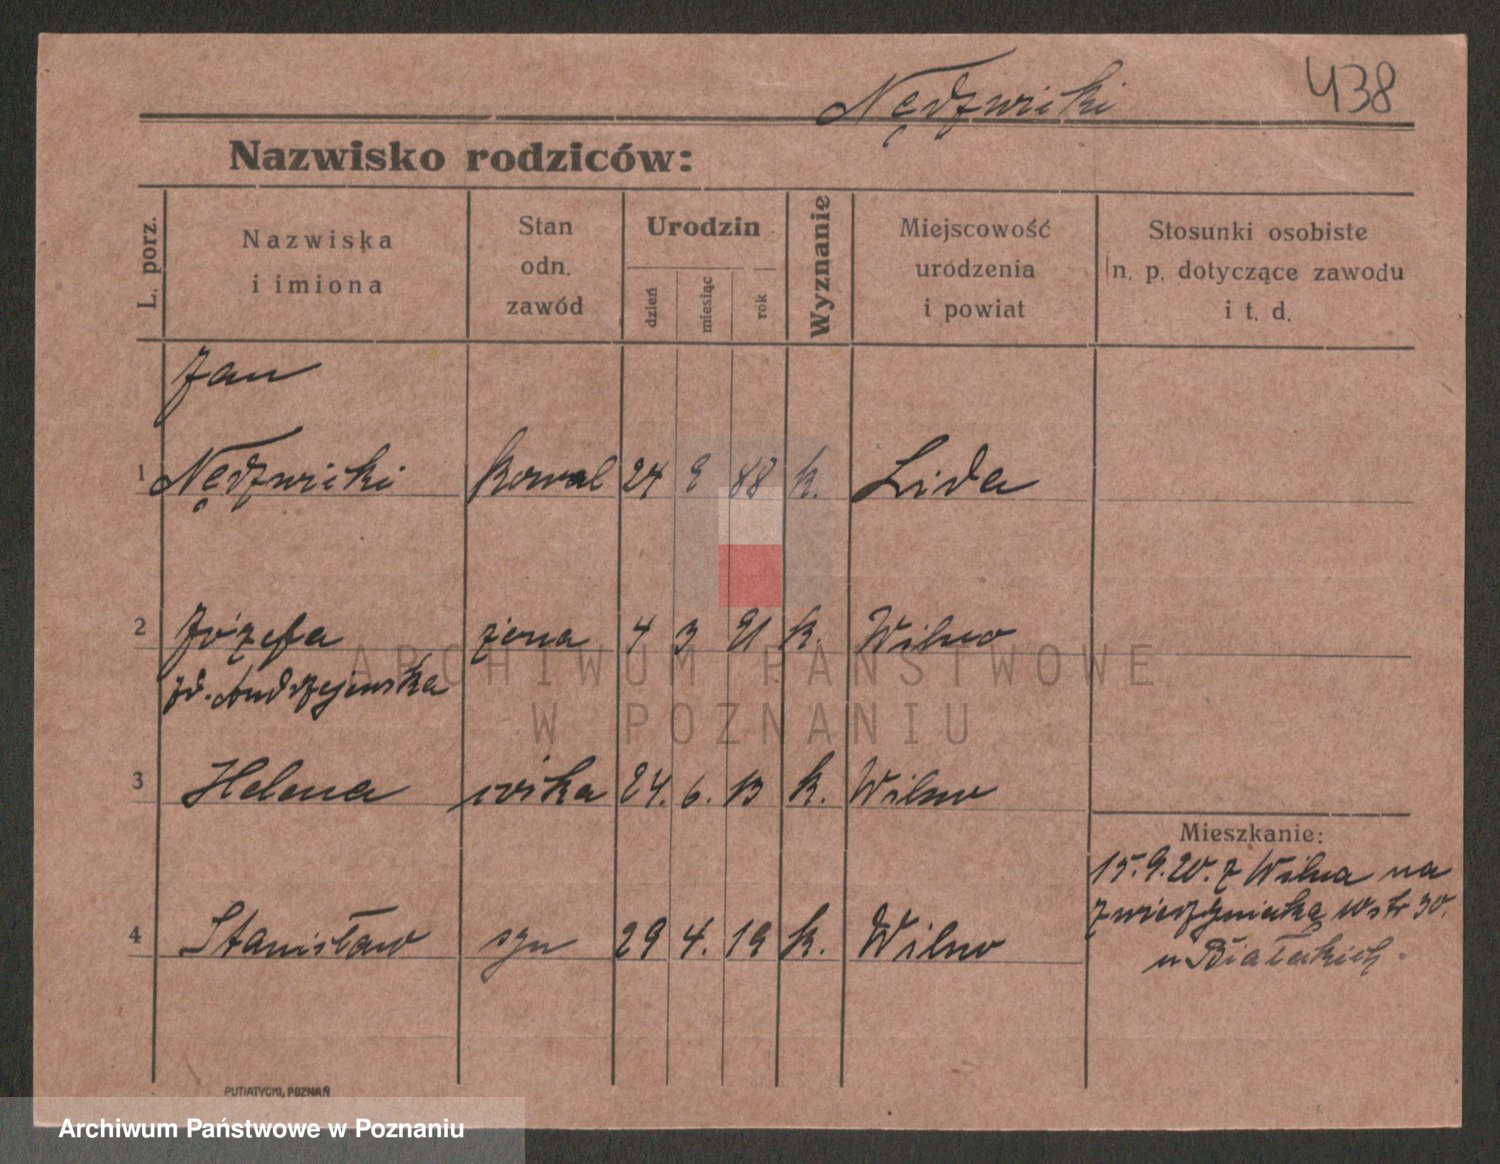 Nędzwicki 438
Nazwisko rodziców:
L. porz.
Nazwiska
i imiona
Stan
odn.
zawód
Urodzin
dzień
miesiąc
rok
Wyznanie
Miejscowość
urodzenia
i powiat
Stosunki osobiste
n. p. dotyczące zawodu
i t. d.
Jan
1 Nędzwicki kowal 24 9 88 k. Lida
2 Józefa żona 4 3 91 k. Wilno
zd. Andrzejewska
3 Helena córka 24. 6. 13 k. Wilno
Mieszkanie:
15.9.20. z Wilna na
Zwierzyniecką 30.
u Białeckich.
4 Stanisław syn 29 4. 19 k. Wilno
PUTIATYCKI, POZNAŃ
ARCHIWUM PAŃSTWOWE
W POZNANIU
Archiwum Państwowe w Poznaniu